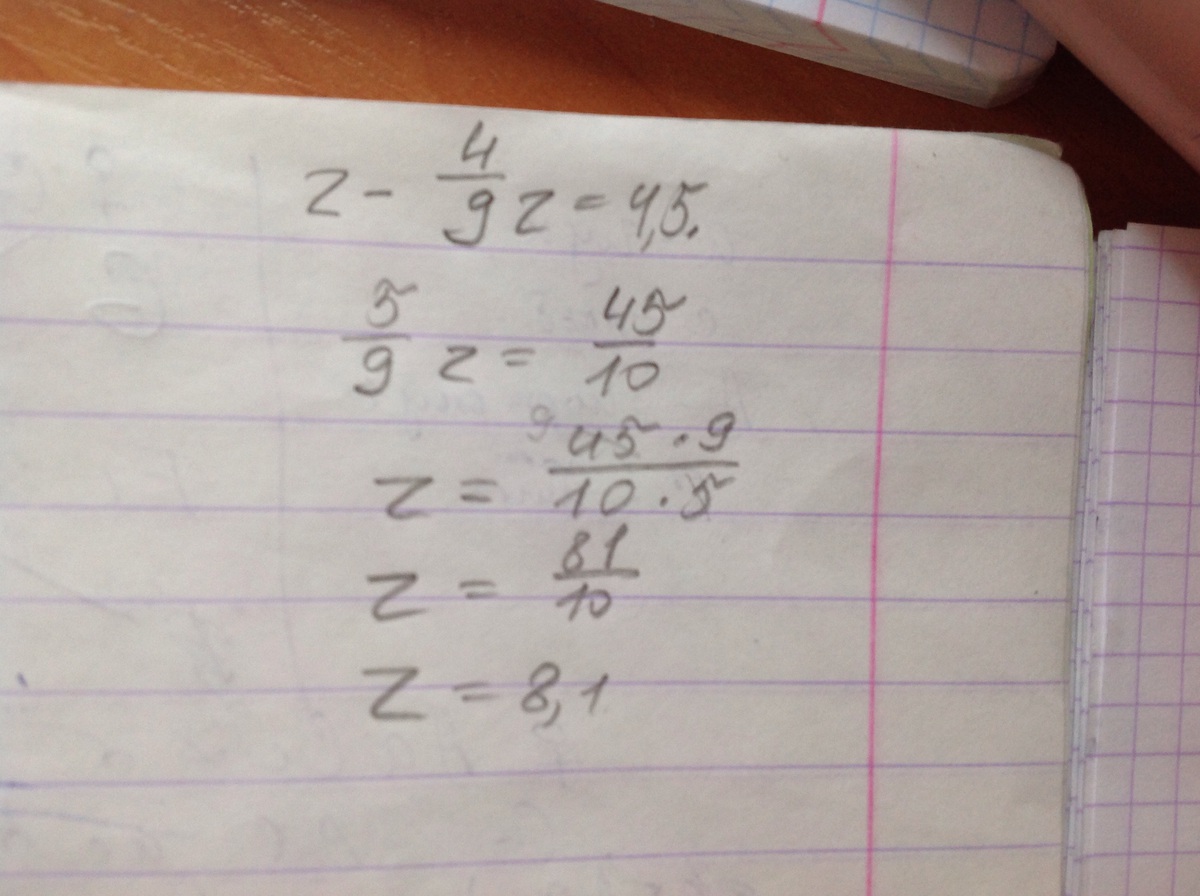 z - 4/9 z = 4,5.
5/9 z = 45/10
z = 9 45 · 9 / 10 · 5
z = 81/10
z = 8,1